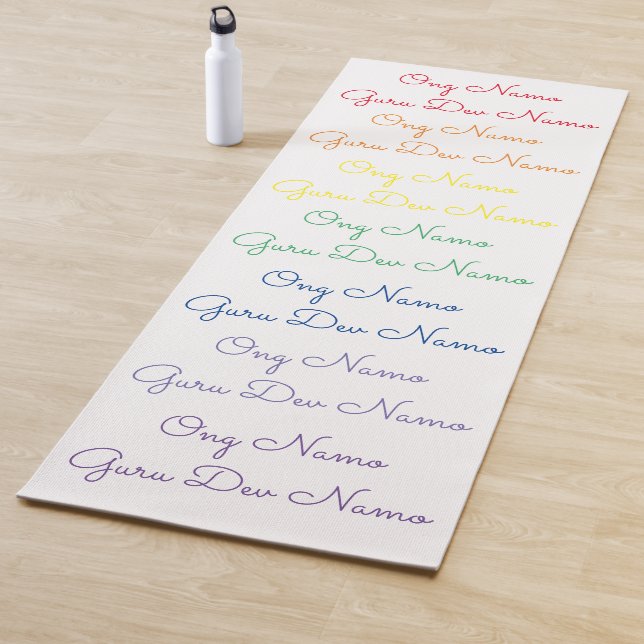 Ong Namo
Guru Dev Namo
Ong Namo
Guru Dev Namo
Ong Namo
Guru Dev Namo
Ong Namo
Guru Dev Namo
Ong Namo
Guru Dev Namo
Ong Namo
Guru Dev Namo
Ong Namo
Guru Dev Namo